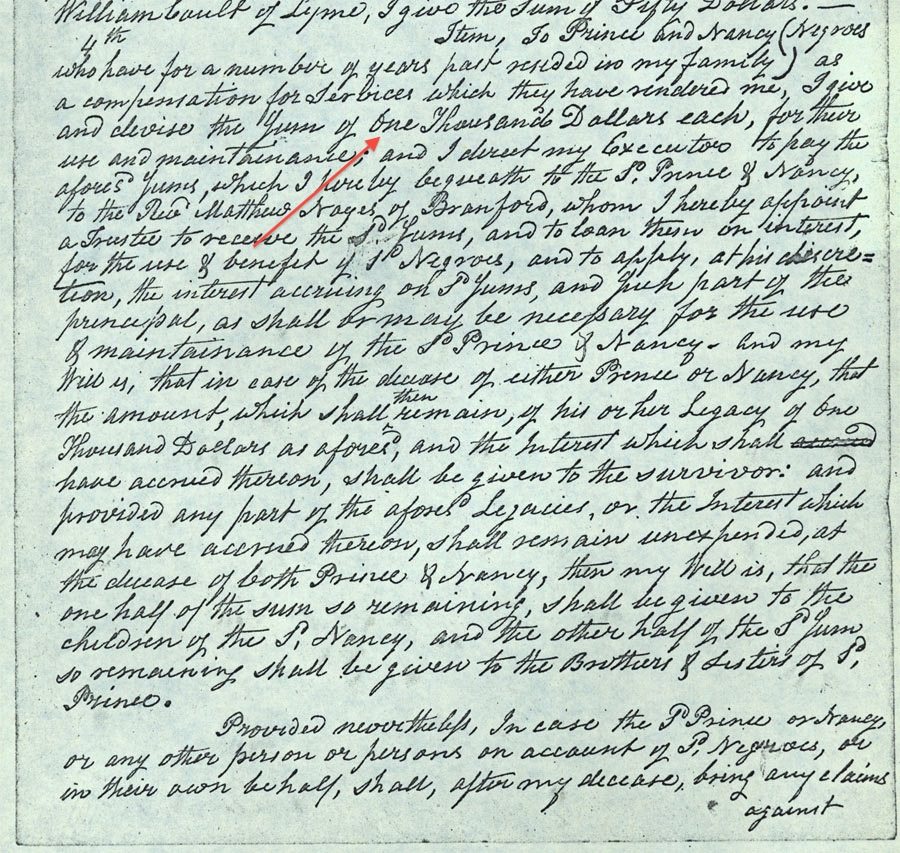 William Coult of Lyme, I give the Sum of Fifty Dollars. —
4th Item, To Prince and Nancy (Negroes
who have for a number of years past resided in my family) as
a compensation for Services which they have rendered me, I give
and devise the Sum of One Thousand Dollars each, for their
use and maintainance; and I direct my Executor to pay the
aforesd Sums, which I hereby bequeath to the Sd. Prince & Nancy,
to the Revd Matthew Noyes, of Branford, whom I hereby appoint
a Trustee to receive the Sd Sums, and to loan them on interest,
for the use & benefit of Sd Negroes, and to apply, at his discre=
tion, the interest accruing on Sd Sums, and Such part of the
principal, as shall or may be necessary for the use
& maintainance of the Sd Prince & Nancy - and my
Will is, that in case of the decease of either Prince or Nancy, that
the amount, which shall then remain, of his or her Legacy of One
Thousand Dollars as aforesd, and the Interest which shall
have accrued thereon, shall be given to the survivor: and
provided any part of the aforesd Legacies, or the Interest which
may have accrued thereon, shall remain unexpended, at
the decease of both Prince & Nancy, then my Will is, that the
one half of the sum so remaining, shall be given to the
children of the Sd. Nancy, and the other half of the Sd Sum
so remaining shall be given to the Brothers & Sisters of Sd.
Prince.
Provided nevertheless, In case the Sd Prince or Nancy,
or any other person or persons on account of Sd. Negroes, or
in their own behalf, shall, after my decease, bring any claims
against